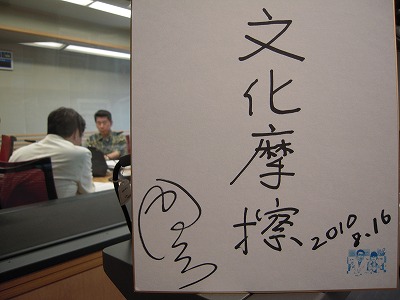 文化摩擦
2010
8.16